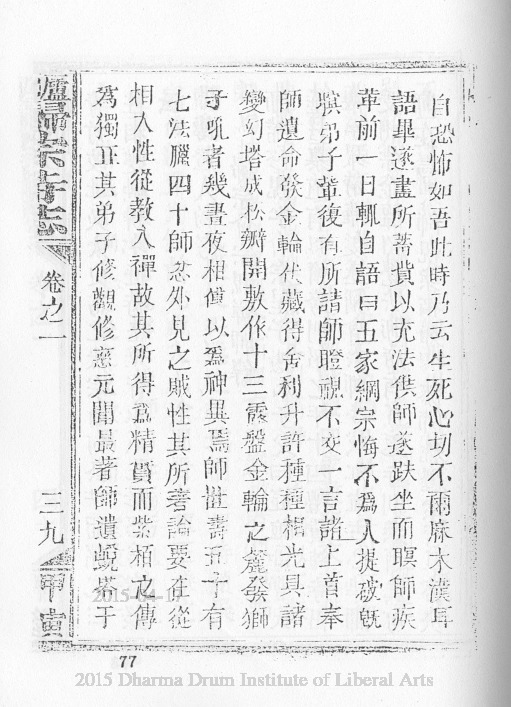 自恐怖如吾此時乃云生死心切不爾麻木漢耳
語畢遂盡所蓄貲以充法供師遂趺坐而瞑師疾
革前一日輒自語曰五家綱宗悔不為人提破旣
瞑弟子輩復有所請師瞪視不交一言諸上首奉
師遺命發金輪伏藏得舍利升許種種相光具諸
變幻塔成松瓣開敷作十三露盤金輪之麓發獅
子吼者幾晝夜相傳以為神異焉師世壽五十有
七法臘四十師忞外見之賊性其所著論要在從
相入性從教入禪故其所得為精實而紫栢之傳
為獨正其弟子修觀修慈元聞最著師遺蛻塔于
廬歸宗寺志
卷之一
三九
甲寅
77
2015 Dharma Drum Institute of Liberal Arts